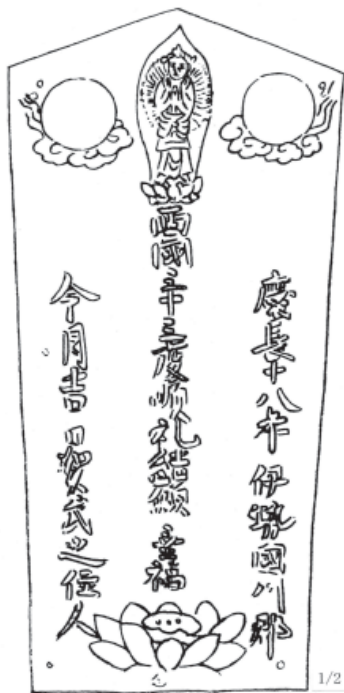 慶長十八年 伊勢國川郡
西國卅三度順礼願 福
今月吉日之住人
1/2